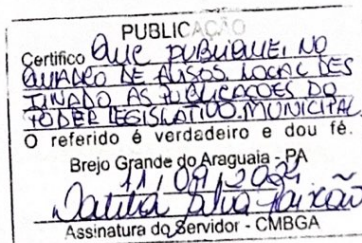 PUBLICAÇÃO
Certifico Que PUBLIQUEI, NO
QUADRO DE AVISOS, LOCAL DES
TINADO AS PUBLICAÇOES DO
PODER LEGISLATIVO MUNICIPAL.
O referido é verdadeiro e dou fé.
Brejo Grande do Araguaia - PA
11/09/2024
Silva Paixão
Assinatura do Servidor - CMBGA